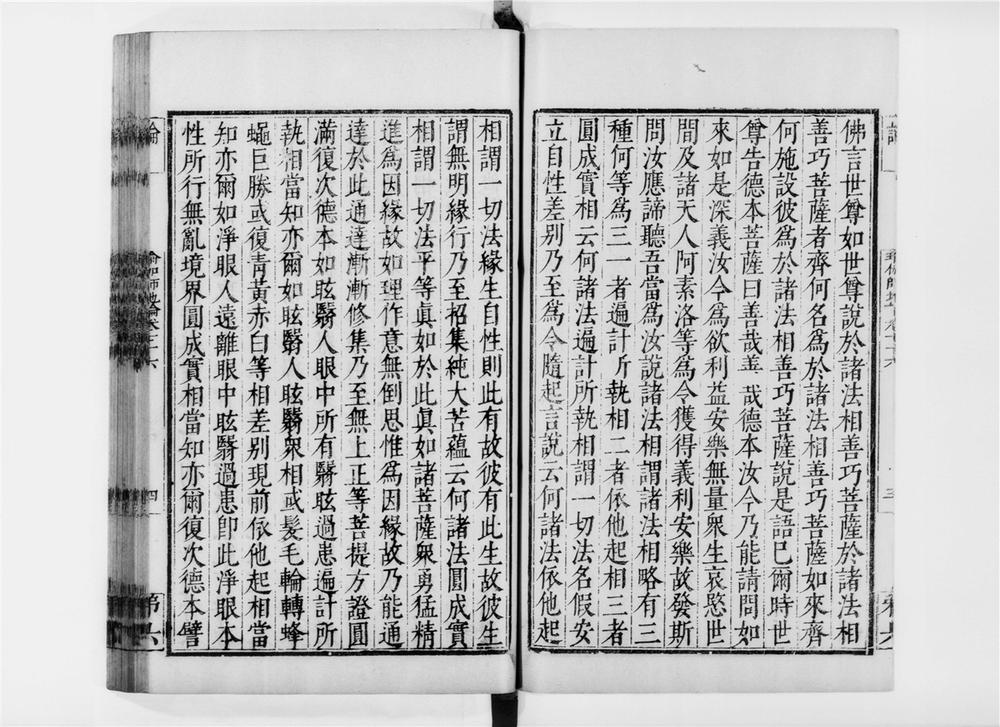 佛言世尊如世尊說於諸法相善巧菩薩於諸法相
善巧菩薩者齊何名爲於諸法相善巧菩薩如來齊
何施設彼爲於諸法相善巧菩薩說是語已爾時世
尊告德本菩薩曰善哉善哉德本汝今乃能請問如
來如是深義汝今爲欲利益安樂無量衆生哀愍世
間及諸天人阿素洛等爲令獲得義利安樂故發斯
問汝應諦聽吾當爲汝說諸法相謂諸法相略有三
種何等爲三一者遍計所執相二者依他起相三者
圓成實相云何諸法遍計所執相謂一切法名假安
立自性差别乃至爲令隨起言說云何諸法依他起
相謂一切法緣生自性則此有故彼有此生故彼生
謂無明緣行乃至招集純大苦蘊云何諸法圓成實
相謂一切法平等眞如於此眞如諸菩薩衆勇猛精
進爲因緣故如理作意無倒思惟爲因緣故乃能通
達於此通達漸漸修集乃至無上正等菩提方證圓
滿復次德本如眩翳人眼中所有翳眩過患遍計所
執相當知亦爾如眩翳人眩翳衆相或髮毛輪轉蜂
蠅巨勝或復青黃赤白等相差别現前依他起相當
知亦爾如淨眼人遠離眼中眩翳過患卽此淨眼本
性所行無亂境界圓成實相當知亦爾復次德本譬
四